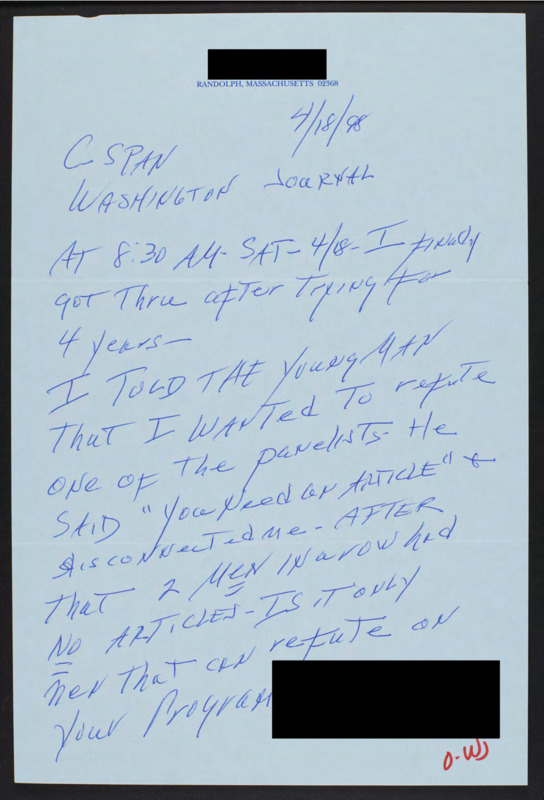 RANDOLPH, MASSACHUSETTS 02368
4/18/98
C SPAN
WASHINGTON JOURNAL
AT 8:30 AM - SAT - 4/18 - I finally
got Thru after Trying For
4 years -
I TOLD THE young MAN
That I WANTed To refute
one of The panelists - He
SAID "you Need an ARTICLE" &
disconnected me - AFTER
that 2 MEN IN a row had
NO ARTICLES - IS it only
men that can refute on
your Program
O-WJ